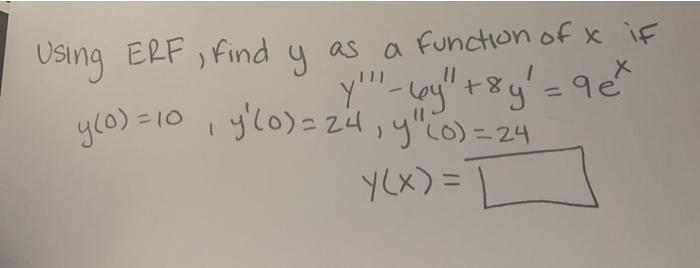 Using ERF, find y as a function of x if
y''' - 6y'' + 8y' = 9e^x
y(0) = 10, y'(0) = 24, y''(0) = 24
y(x) =